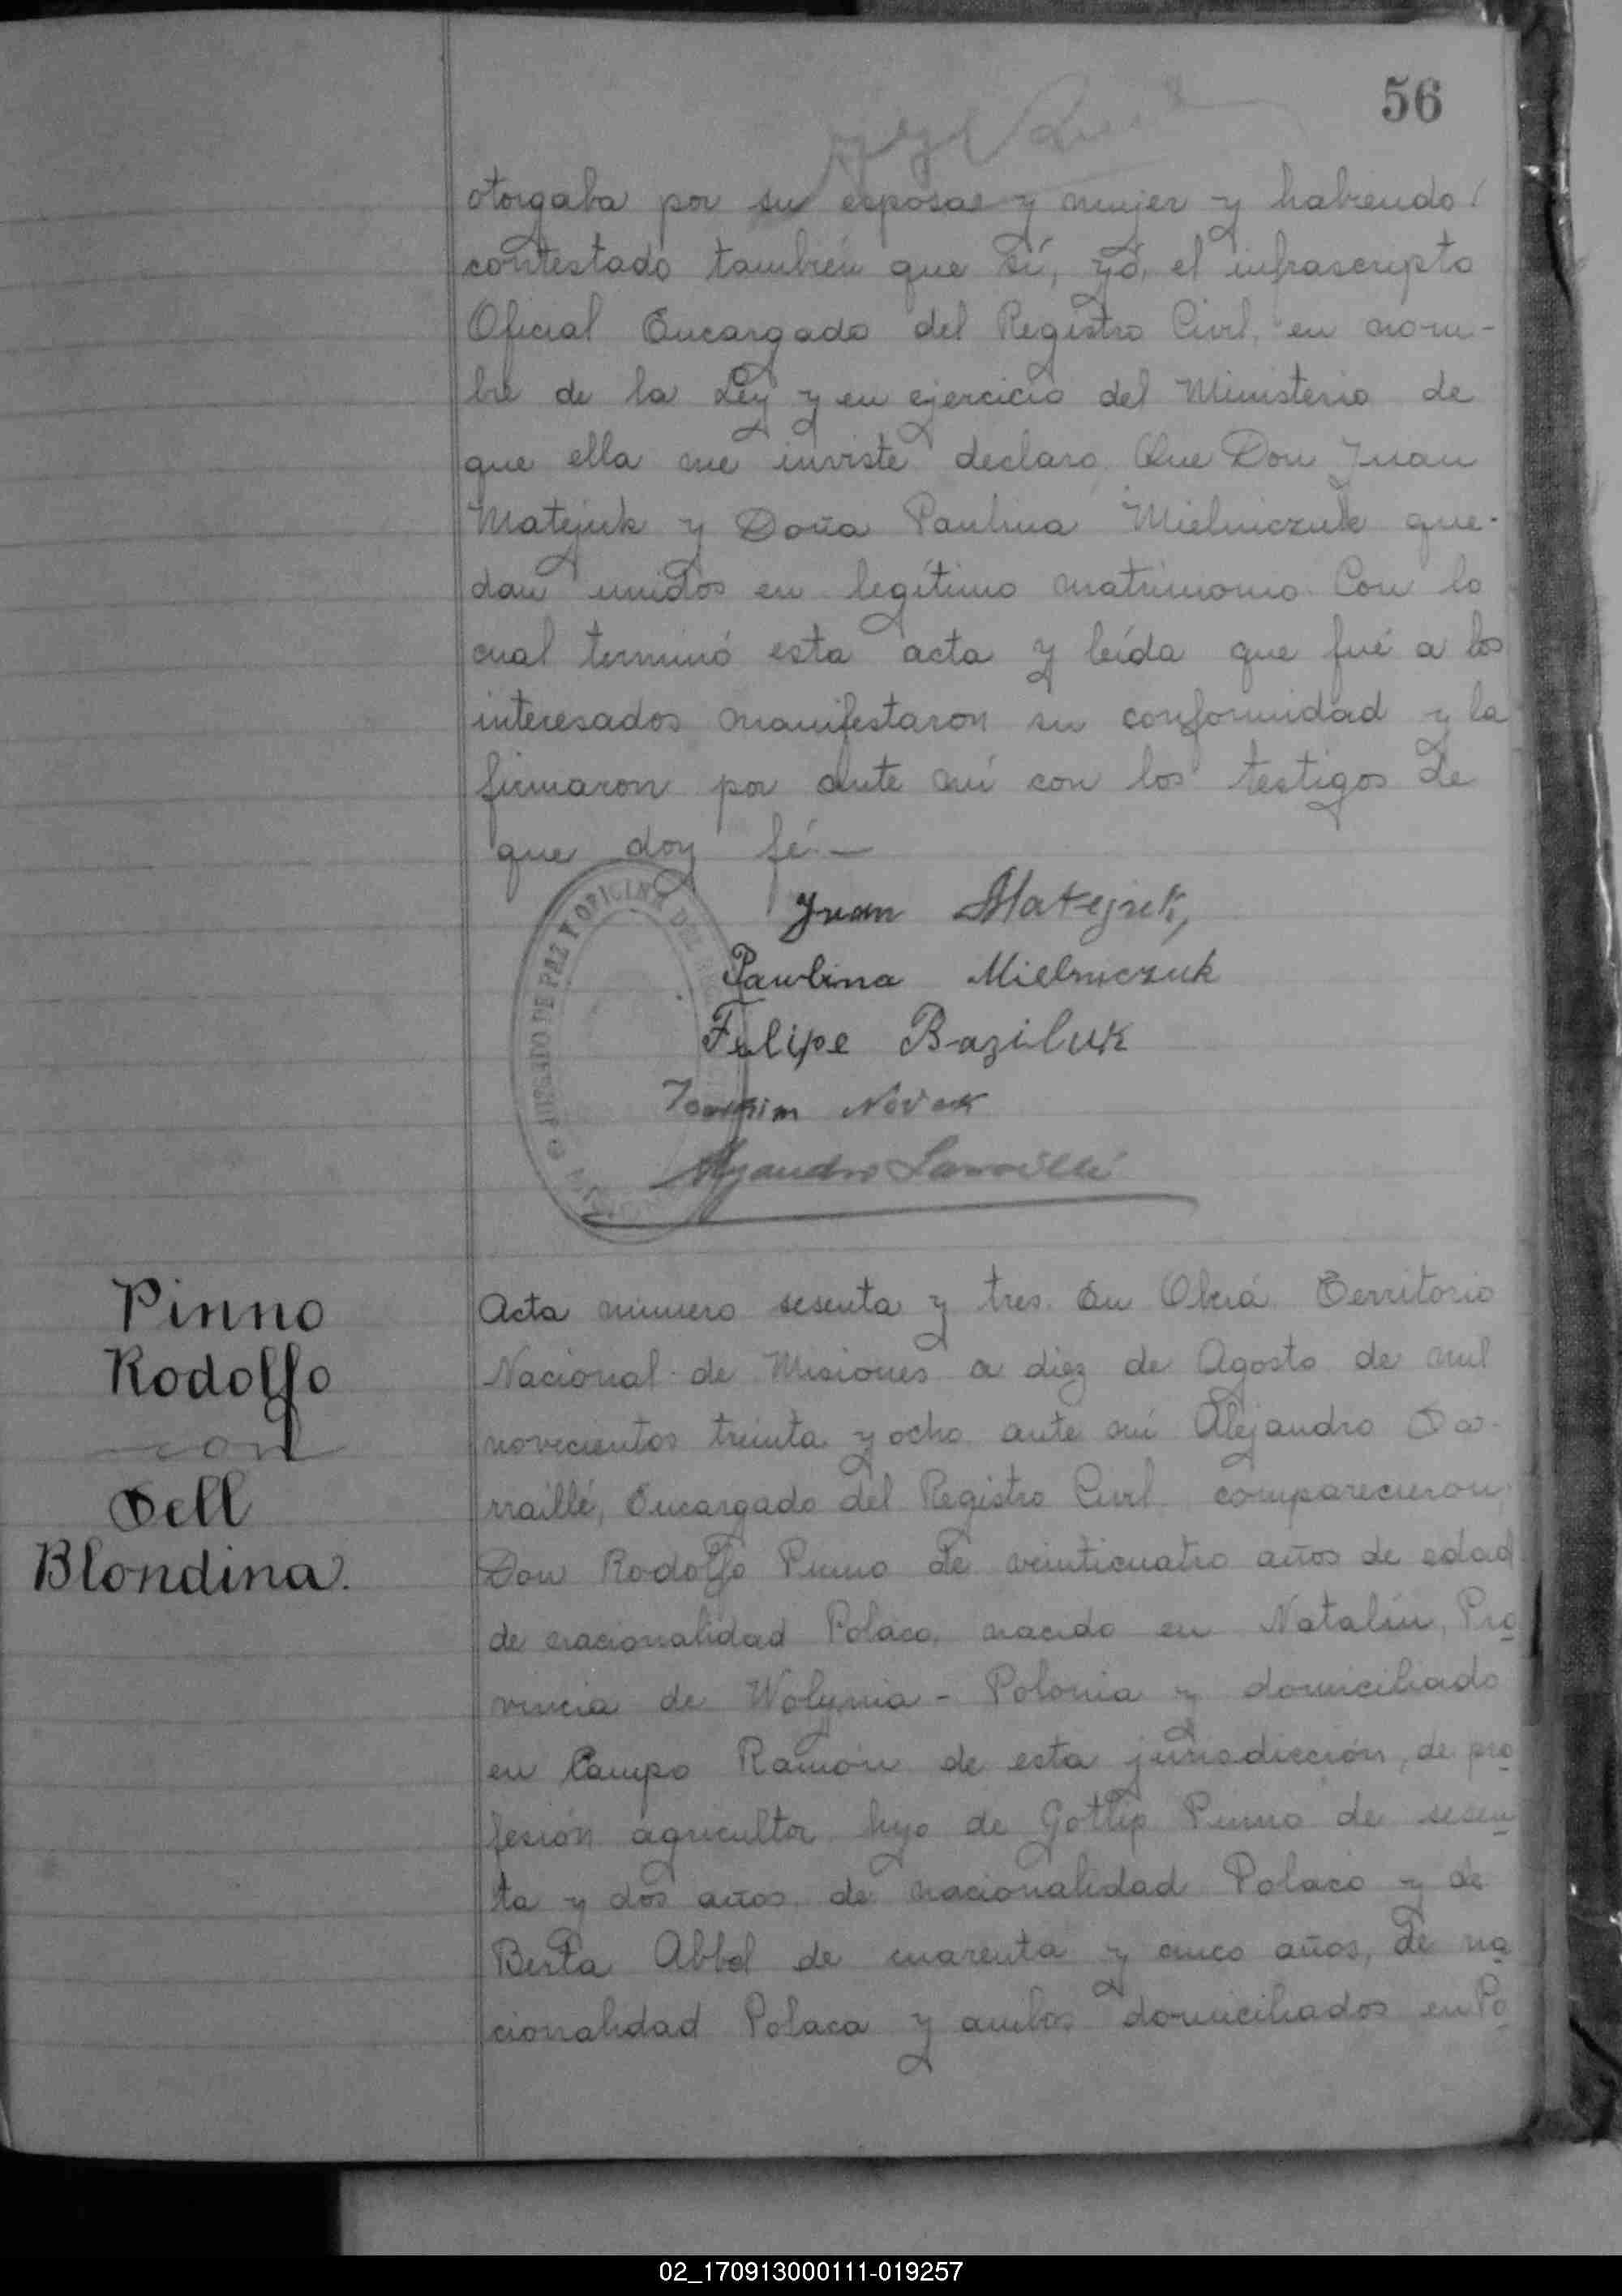 56
otorgaba por su esposa y mujer y habiendo
contestado también que sí, yó, el infrascripto
Oficial Encargado del Registro Civil, en nom-
bre de la Ley y en ejercicio del Ministerio de
que ella me inviste declaro, Que Don Juan
Matejuk y Doña Paulina Mielniczuk que-
dan unidos en legítimo matrimonio. Con lo
cual terminó esta acta y leída que fué a los
interesados manifestaron su conformidad y la
firmaron por ante mí con los testigos de
que doy fé.—
JUZGADO DE PAZ Y OFICINA DEL
Juan Matejuk,
Paulina Mielniczuk
Felipe Baziluk
Joakim Novak
Pinno
Rodolfo
con
Tell
Blondina.
Acta número sesenta y tres. En Oberá Territorio
Nacional de Misiones a diez de Agosto de mil
novecientos treinta y ocho ante mí Alejandro
Encargado del Registro Civil, comparecieron,
Don Rodolfo Pinno de veinticuatro años de edad
de nacionalidad Polaco, nacido en Natalin, Pro
vincia de Wolynia - Polonia y domiciliado
en Campo Ramón de esta jurisdicción, de pro
fesión agricultor hijo de Gotlip Pinno de sesen
ta y dos años, de nacionalidad Polaco y de
Berta Abbel de cuarenta y cinco años, de na
cionalidad Polaca y ambos domiciliados en Po
02_170913000111-019257